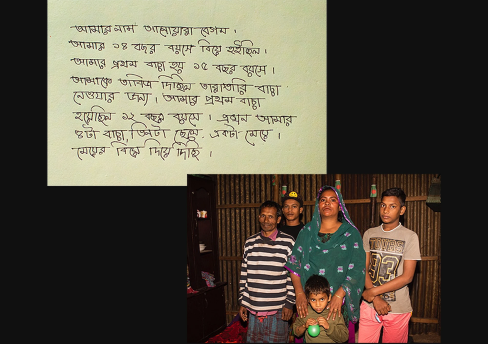 আমার নাম আনোয়ারা বেগম।
আমার ১৪ বছর বয়সে বিয়ে হইছিল।
আমার প্রথম বাচ্চা হয় ১৫ বছর বয়সে।
আমাকে তাবিজ দিছিল তাড়াতাড়ি বাচ্চা
নেওয়ার জন্য। আমার প্রথম বাচ্চা
হয়েছিল ১২ বছর বয়সে। এখন আমার
৪টা বাচ্চা, তিনটা ছেলে, একটা মেয়ে।
মেয়ের বিয়ে দিয়ে দিছি।
93